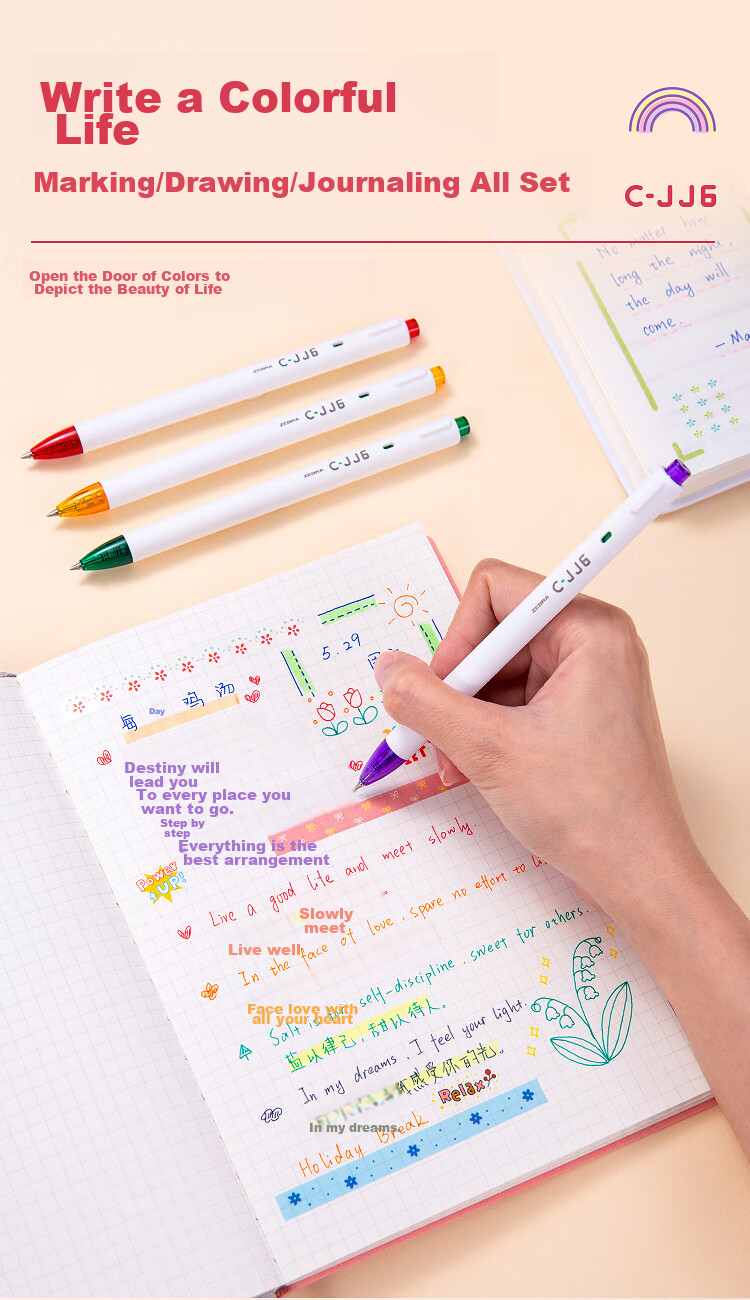 Write a Colorful
Life
Marking/Drawing/Journaling All Set
C-JJ6
Open the Door of Colors to
Depict the Beauty of Life
No matter how
long the night,
the day will
come.
— Ma
ZEBRA C-JJ6
ZEBRA C-JJ6
ZEBRA C-JJ6
ZEBRA C-JJ6
5.29
每 Day 鸡汤
Destiny will
lead you
To every place you
want to go.
Step by
step
Everything is the
best arrangement
Power
UP!
Live a good life and meet slowly.
Slowly
meet
Live well
In the face of love, spare no effort to
Face love with
all your heart
Salt self-discipline, sweet for others.
盐以律己,甜以待人。
In my dreams, I feel your light.
感受你的光。
In my dreams,
Relax
Holiday Break